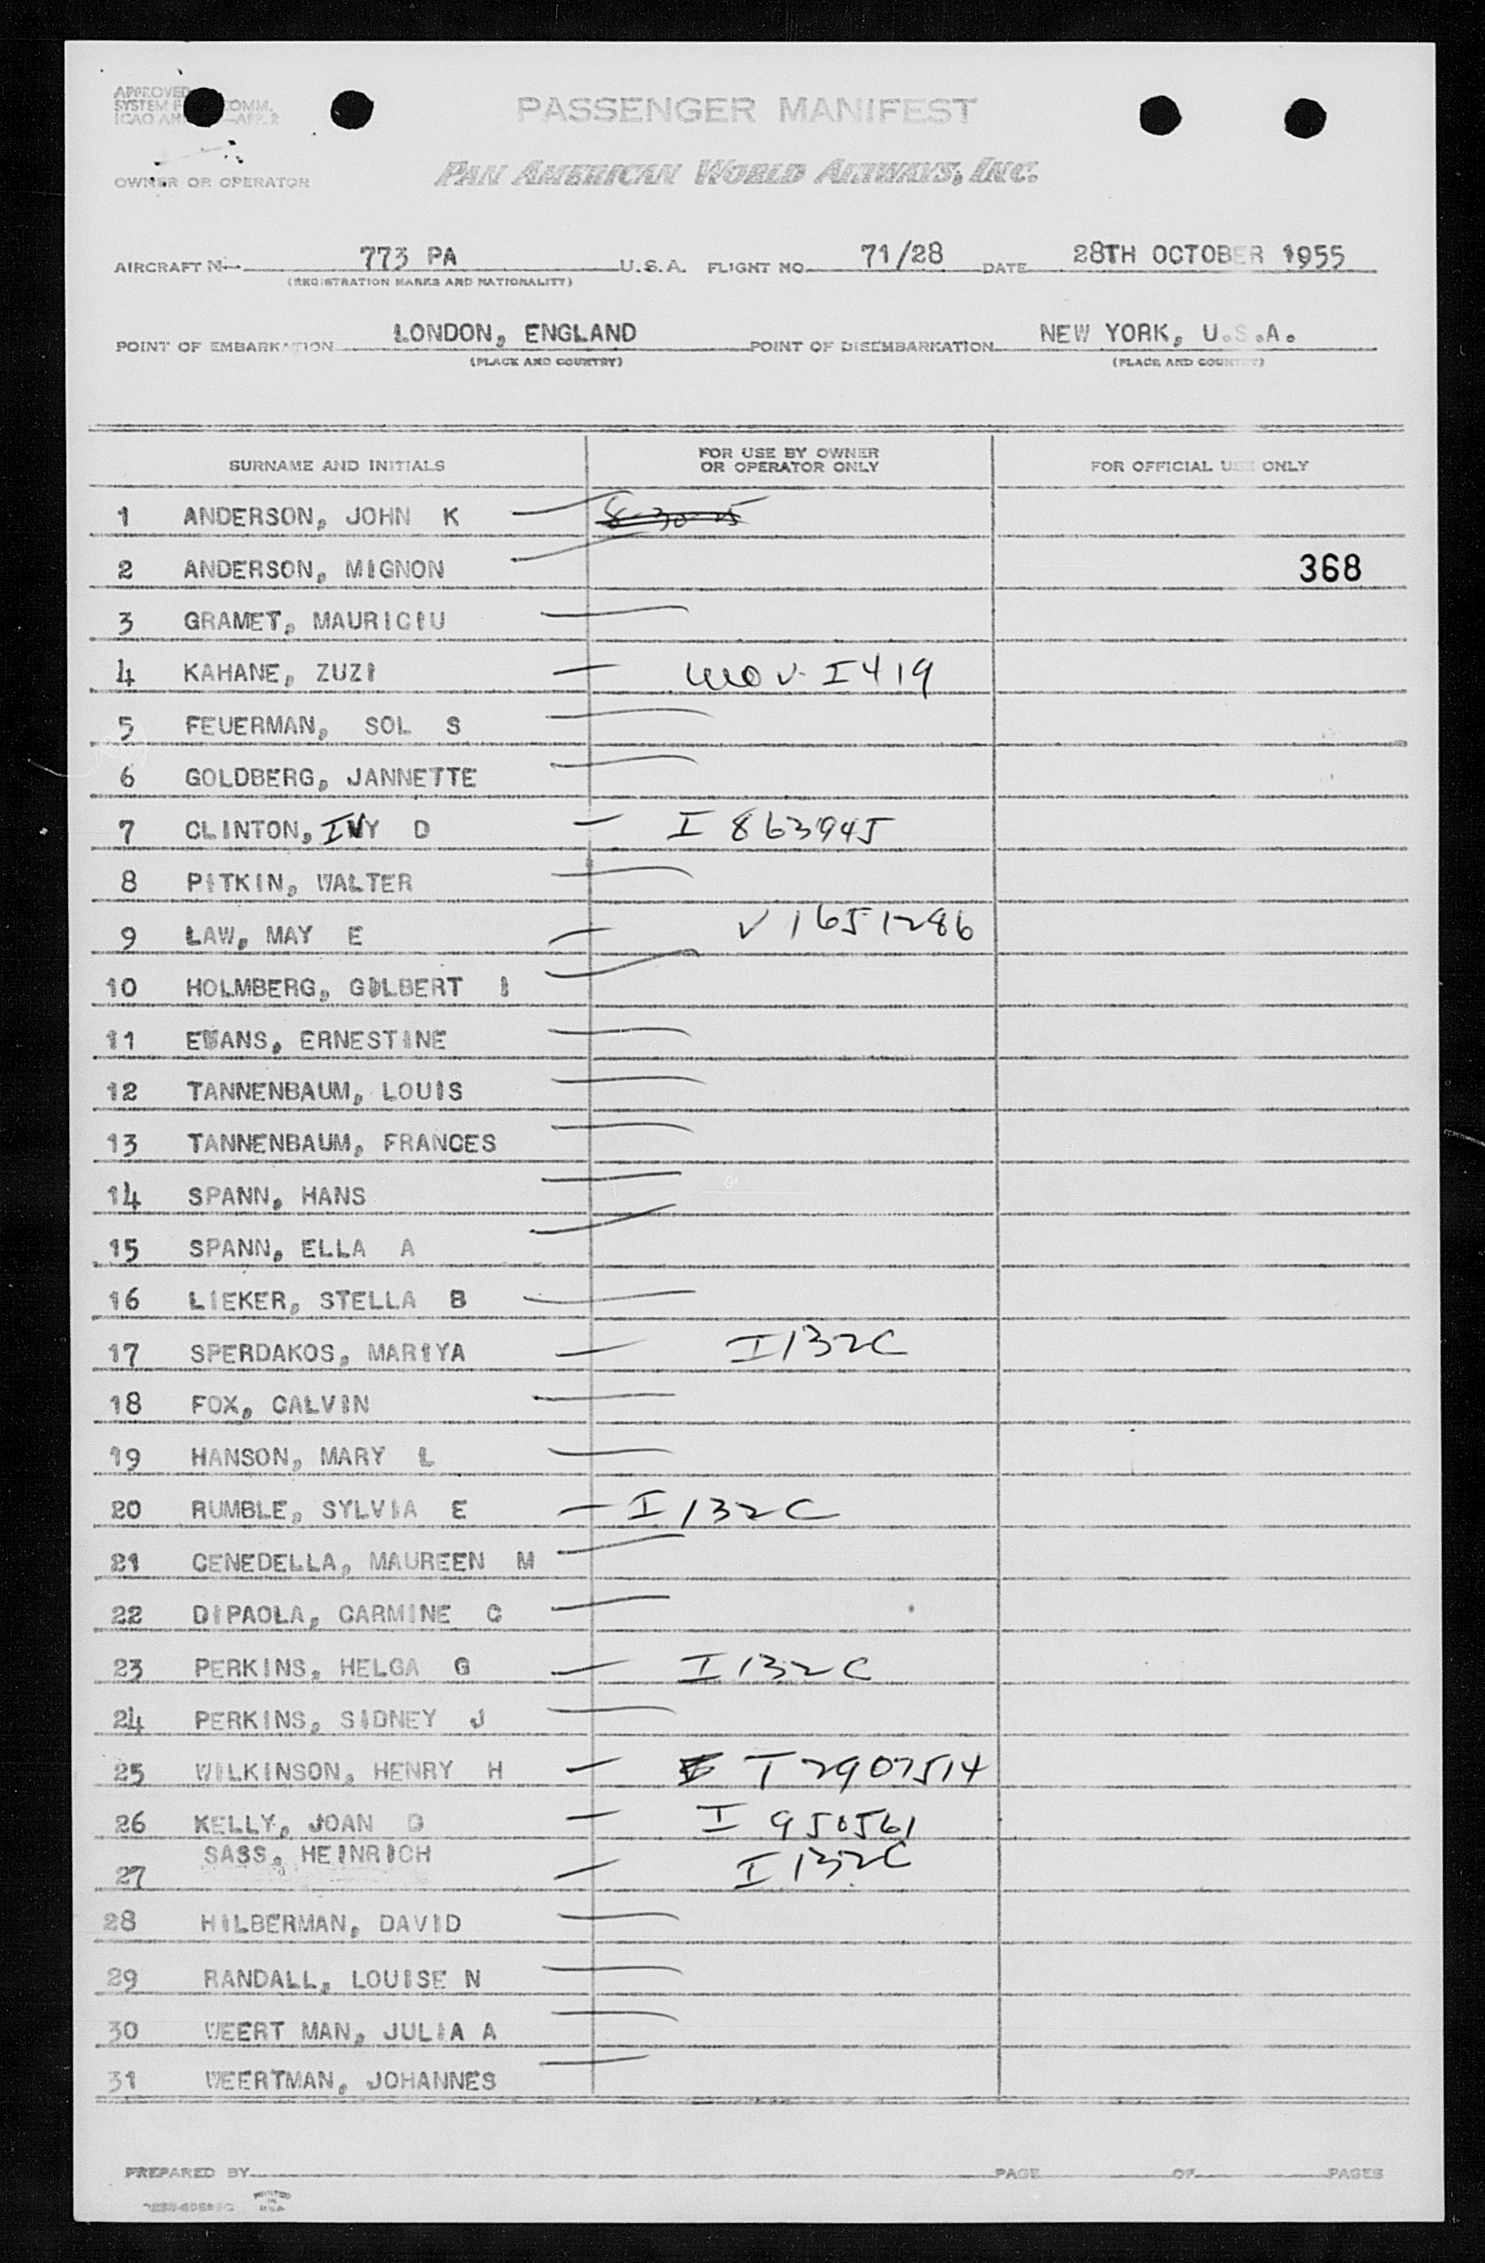 APPROVED
SYSTEM COMM.
ICAO
PASSENGER MANIFEST
PAN AMERICAN WORLD AIRWAYS, INC.
OWNER OR OPERATOR
AIRCRAFT No. 773 PA U.S.A. FLIGHT NO. 71/28 DATE 28TH OCTOBER 1955
(REGISTRATION MARKS AND NATIONALITY)
POINT OF EMBARKATION LONDON, ENGLAND POINT OF DISEMBARKATION NEW YORK, U.S.A.
(PLACE AND COUNTRY) (PLACE AND COUNTRY)
SURNAME AND INITIALS FOR USE BY OWNER OR OPERATOR ONLY FOR OFFICIAL USE ONLY
1 ANDERSON, JOHN K 8-30-
2 ANDERSON, MIGNON 368
3 GRAMET, MAURICIU
4 KAHANE, ZUZI I419
5 FEUERMAN, SOL S
6 GOLDBERG, JANNETTE
7 CLINTON, IVY D I 863945
8 PITKIN, WALTER
9 LAW, MAY E V 1651286
10 HOLMBERG, GILBERT I
11 EVANS, ERNESTINE
12 TANNENBAUM, LOUIS
13 TANNENBAUM, FRANCES
14 SPANN, HANS
15 SPANN, ELLA A
16 LIEKER, STELLA B
17 SPERDAKOS, MARIYA I132C
18 FOX, CALVIN
19 HANSON, MARY L
20 RUMBLE, SYLVIA E I 132C
21 CENEDELLA, MAUREEN M
22 DIPAOLA, CARMINE C
23 PERKINS, HELGA G I 132C
24 PERKINS, SIDNEY J
25 WILKINSON, HENRY H T 2907514
26 KELLY, JOAN D I 950561
27 SASS, HEINRICH I 132C
28 HILBERMAN, DAVID
29 RANDALL, LOUISE N
30 WEERT MAN, JULIA A
31 WEERTMAN, JOHANNES
PREPARED BY PAGE OF PAGES
PRINTED IN U.S.A.